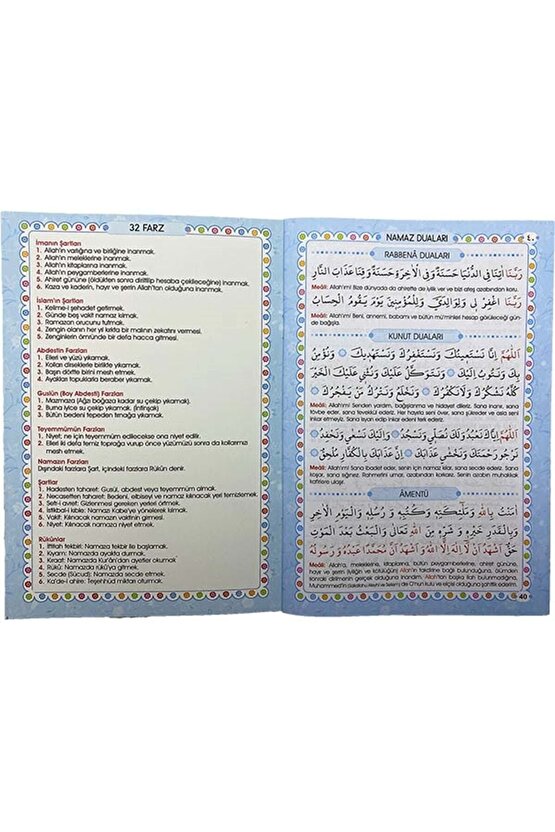 32 FARZ
İmanın Şartları
1. Allah'ın varlığına ve birliğine inanmak.
2. Allah'ın meleklerine inanmak.
3. Allah'ın kitaplarına inanmak.
4. Allah'ın peygamberlerine inanmak.
5. Ahiret gününe (öldükten sonra diriltilip hesaba çekileceğine) inanmak.
6. Kaza ve kaderin, hayır ve şerrin Allah'tan olduğuna inanmak.
İslam'ın Şartları
1. Kelime-i şehadet getirmek.
2. Günde beş vakit namaz kılmak.
3. Ramazan orucunu tutmak.
4. Zengin olanın her yıl kırkta bir malının zekatını vermesi.
5. Zenginlerin ömründe bir defa hacca gitmesi.
Abdestin Farzları
1. Elleri ve yüzü yıkamak.
2. Kolları dirseklerle birlikte yıkamak.
3. Başın dörtte birini mesh etmek.
4. Ayakları topuklarla beraber yıkamak.
Guslün (Boy Abdesti) Farzları
1. Mazmaza (Ağzı boğaza kadar su çekip yıkamak).
2. Burna iyice su çekip yıkamak. (İntişak)
3. Bütün bedeni tepeden tırnağa yıkamak.
Teyemmümün Farzları
1. Niyet; ne için teyemmüm edilecekse ona niyet edilir.
2. Elleri iki defa temiz toprağa vurup önce yüzümüzü sonra da kollarımızı
mesh etmek.
Namazın Farzları
Dışındaki farzlara Şart, içindeki farzlara Rükün denir.
Şartlar
1. Hadesten taharet: Gusül, abdest veya teyemmüm almak.
2. Necasetten taharet: Bedeni, elbiseyi ve namaz kılınacak yeri temizlemek.
3. Setr-i avret: Gizlenmesi gereken yerleri örtmek.
4. İstikbal-i kıble: Namazı Kabe'ye yönelerek kılmak.
5. Vakit: Kılınacak namazın vaktinin girmesi.
6. Niyet: Kılınacak namaza niyet etmek.
Rükünlar
1. İftitah tekbiri: Namaza tekbir ile başlamak.
2. Kıyam: Namazda ayakta durmak.
3. Kıraat: Namazda Kur'ân'dan ayetler okumak
4. Rükû: Namazda rükû'ya gitmek.
5. Secde (Sücud): Namazda secde etmek.
6. Ka'de-i ahire: Teşehhüd miktarı oturmak.
NAMAZ DUALARI
٤٠
RABBENÂ DUALARI
رَبَّنَا اٰتِنَا فِي الدُّنْيَا حَسَنَةً وَفِي الْاٰخِرَةِ حَسَنَةً وَقِنَا عَذَابَ النَّارِ
Meâli: Allah'ım! Bize dünyada da ahirette de iyilik ver ve bizi ateş azabından koru.
رَبَّنَا اغْفِرْ لِي وَلِوَالِدَيَّ وَلِلْمُؤْمِنِينَ يَوْمَ يَقُومُ الْحِسَابُ
Meâli: Allah'ım! Beni, annemi, babamı ve bütün mü'minleri hesap görüleceği gün
de bağışla.
KUNUT DUALARI
اَللّٰهُمَّ اِنَّا نَسْتَعِينُكَ وَنَسْتَغْفِرُكَ وَنَسْتَهْدِيكَ وَنُؤْمِنُ
بِكَ وَنَتُوبُ اِلَيْكَ وَنَتَوَكَّلُ عَلَيْكَ وَنُثْنِي عَلَيْكَ الْخَيْرَ
كُلَّهُ نَشْكُرُكَ وَلَا نَكْفُرُكَ وَنَخْلَعُ وَنَتْرُكُ مَنْ يَفْجُرُكَ
Meâli: Allah'ım! Senden yardım, bağışlanma ve hidayet dileriz. Sana inanır, sana
tövbe eder, sana tevekkül ederiz. Her hayırla seni över, sana şükreder ve asla seni
inkar etmeyiz. Sana isyan edip inkar edeni terk ederiz.
اَللّٰهُمَّ اِيَّاكَ نَعْبُدُ وَلَكَ نُصَلِّي وَنَسْجُدُ وَاِلَيْكَ نَسْعٰى وَنَحْفِدُ
نَرْجُو رَحْمَتَكَ وَنَخْشٰى عَذَابَكَ اِنَّ عَذَابَكَ بِالْكُفَّارِ مُلْحِقٌ
Meâli: Allah'ım! Sana ibadet eder, senin için namaz kılar, sana secde ederiz. Sana
koşar, sana sığınırız. Rahmetini umar, azabından korkarız. Senin azabın muhakkak
kafirlere ulaşır.
ÂMENTÜ
اٰمَنْتُ بِاللّٰهِ وَمَلٰئِكَتِهِ وَكُتُبِهِ وَرُسُلِهِ وَالْيَوْمِ الْاٰخِرِ
وَبِالْقَدَرِ خَيْرِهِ وَشَرِّهِ مِنَ اللّٰهِ تَعَالٰى وَالْبَعْثُ بَعْدَ الْمَوْتِ
حَقٌّ اَشْهَدُ اَنْ لَا اِلٰهَ اِلَّا اللّٰهُ وَاَشْهَدُ اَنَّ مُحَمَّدًا عَبْدُهُ وَرَسُولُهُ
Meâli: Allah'a, meleklerine, kitaplarına, bütün peygamberlerine, ahiret gününe,
hayır ve şerrin (iyiliğin ve kötülüğün) Allah'ın takdirine bağlı bulunduğuna, ölümden
sonraki dirilmenin gerçek olduğuna inandım. Allah'tan başka ilah bulunmadığına,
Muhammed'in (Salallâhu Aleyhi ve Selem) de O'nun kulu ve elçisi olduğuna şahitlik ederim.
40